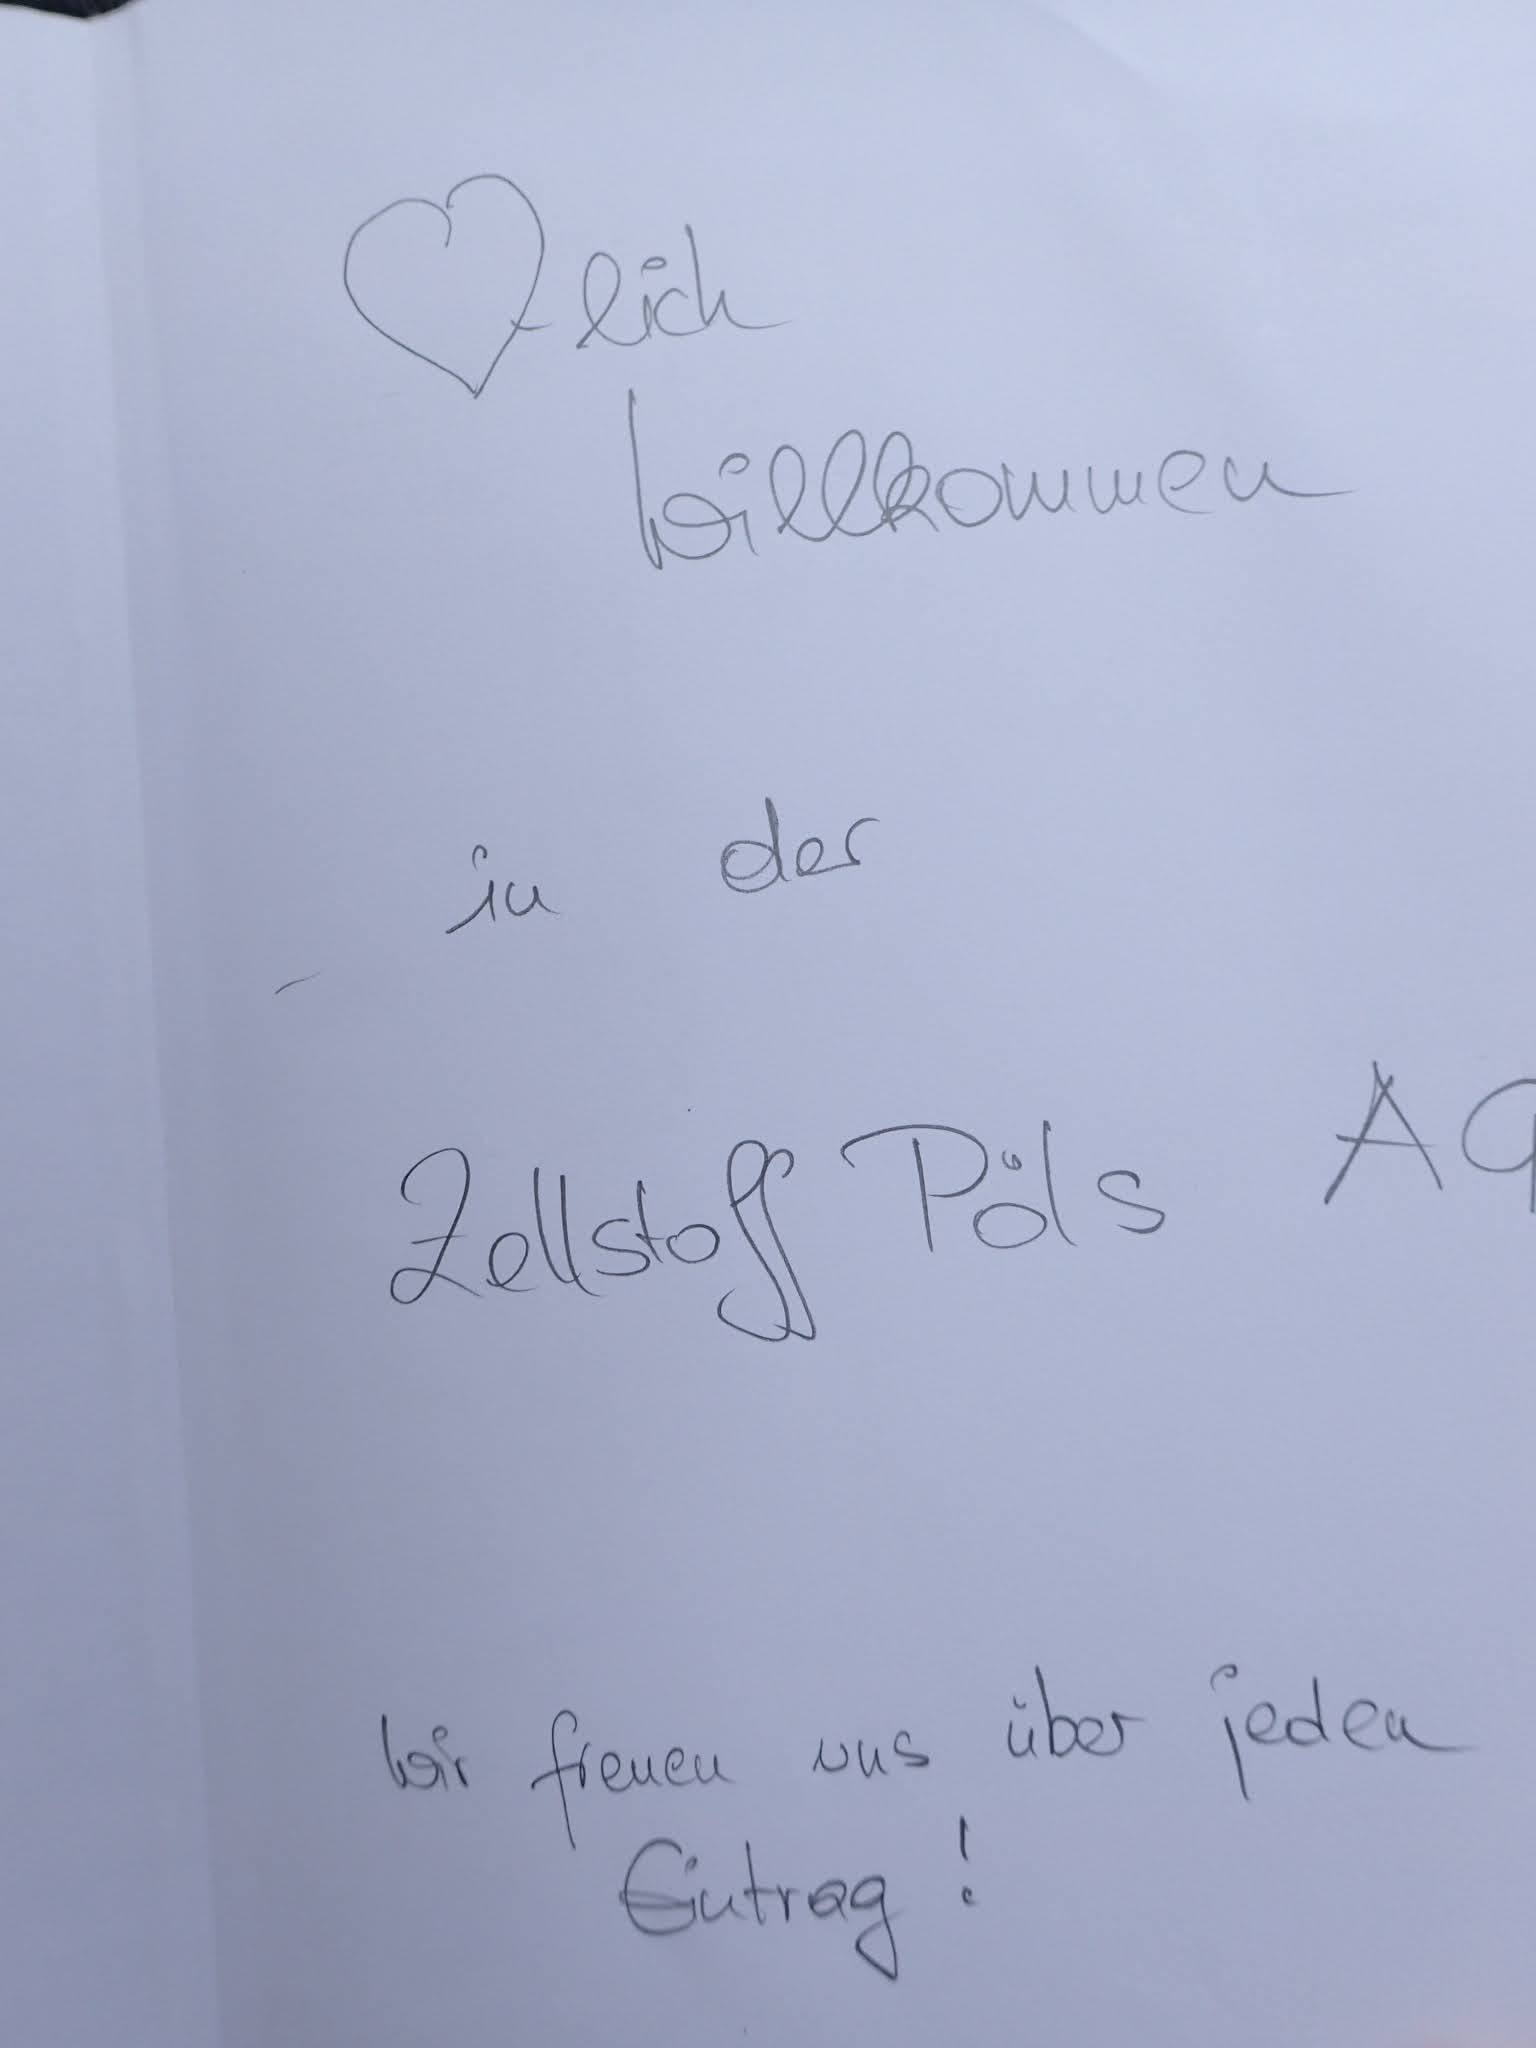 ♡-lich
Willkommen
in der
Zellstoff Pöls AG
Wir freuen uns über jeden
Eintrag!